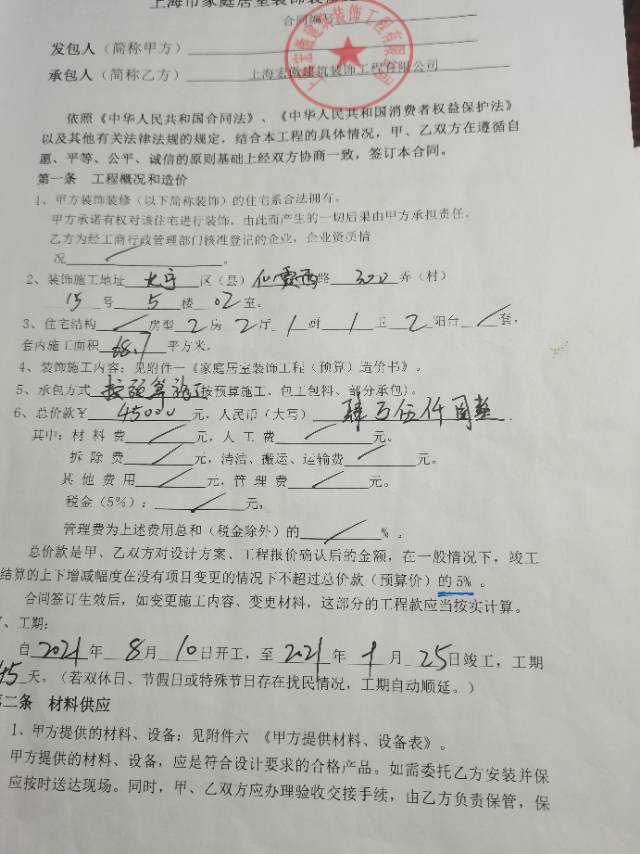 上海市家庭居室装饰装修
合同编号
发包人（简称甲方）
承包人（简称乙方） 上海宏傲建筑装饰工程有限公司
依照《中华人民共和国合同法》、《中华人民共和国消费者权益保护法》
以及其他有关法律法规的规定，结合本工程的具体情况，甲、乙双方在遵循自
愿、平等、公平、诚信的原则基础上经双方协商一致，签订本合同。
第一条 工程概况和造价
1、甲方装饰装修（以下简称装饰）的住宅系合法拥有。
甲方承诺有权对该住宅进行装饰，由此而产生的一切后果由甲方承担责任。
乙方为经工商行政管理部门核准登记的企业，企业资质情
况 / 。
2、装饰施工地址 区（县） 仙霞西路 300 弄（村）
15 号 5 楼 02 室。
3、住宅结构 / 房型 2 房 2 厅 1 厨 1 卫 2 阳台 / 套，
套内施工面积 68.7 平方米。
4、装饰施工内容：见附件一《家庭居室装饰工程（预算）造价书》。
5、承包方式 按预算施工（按预算施工、包工包料、部分承包）。
6、总价款￥ 45000 元，人民币（大写） 肆万伍仟圆整.
其中：材料费 / 元，人工费 / 元。
拆除费 / 元，清洁、搬运、运输费 / 元。
其他费用 / 元，管理费 / 元。
税金（5%）： / 元，
管理费为上述费用总和（税金除外）的 / %。
总价款是甲、乙双方对设计方案、工程报价确认后的金额，在一般情况下，竣工
结算的上下增减幅度在没有项目变更的情况下不超过总价款（预算价）的5%。
合同签订生效后，如变更施工内容、变更材料，这部分的工程款应当按实计算。
7、工期：
自 2021 年 8 月 10 日开工，至 2021 年 9 月 25 日竣工，工期
45 天。（若双休日、节假日或特殊节日存在扰民情况，工期自动顺延。）
第二条 材料供应
1、甲方提供的材料、设备：见附件六 《甲方提供材料、设备表》。
甲方提供的材料、设备，应是符合设计要求的合格产品。如需委托乙方安装并保
应按时送达现场。同时，甲、乙双方应办理验收交接手续，由乙方负责保管，保